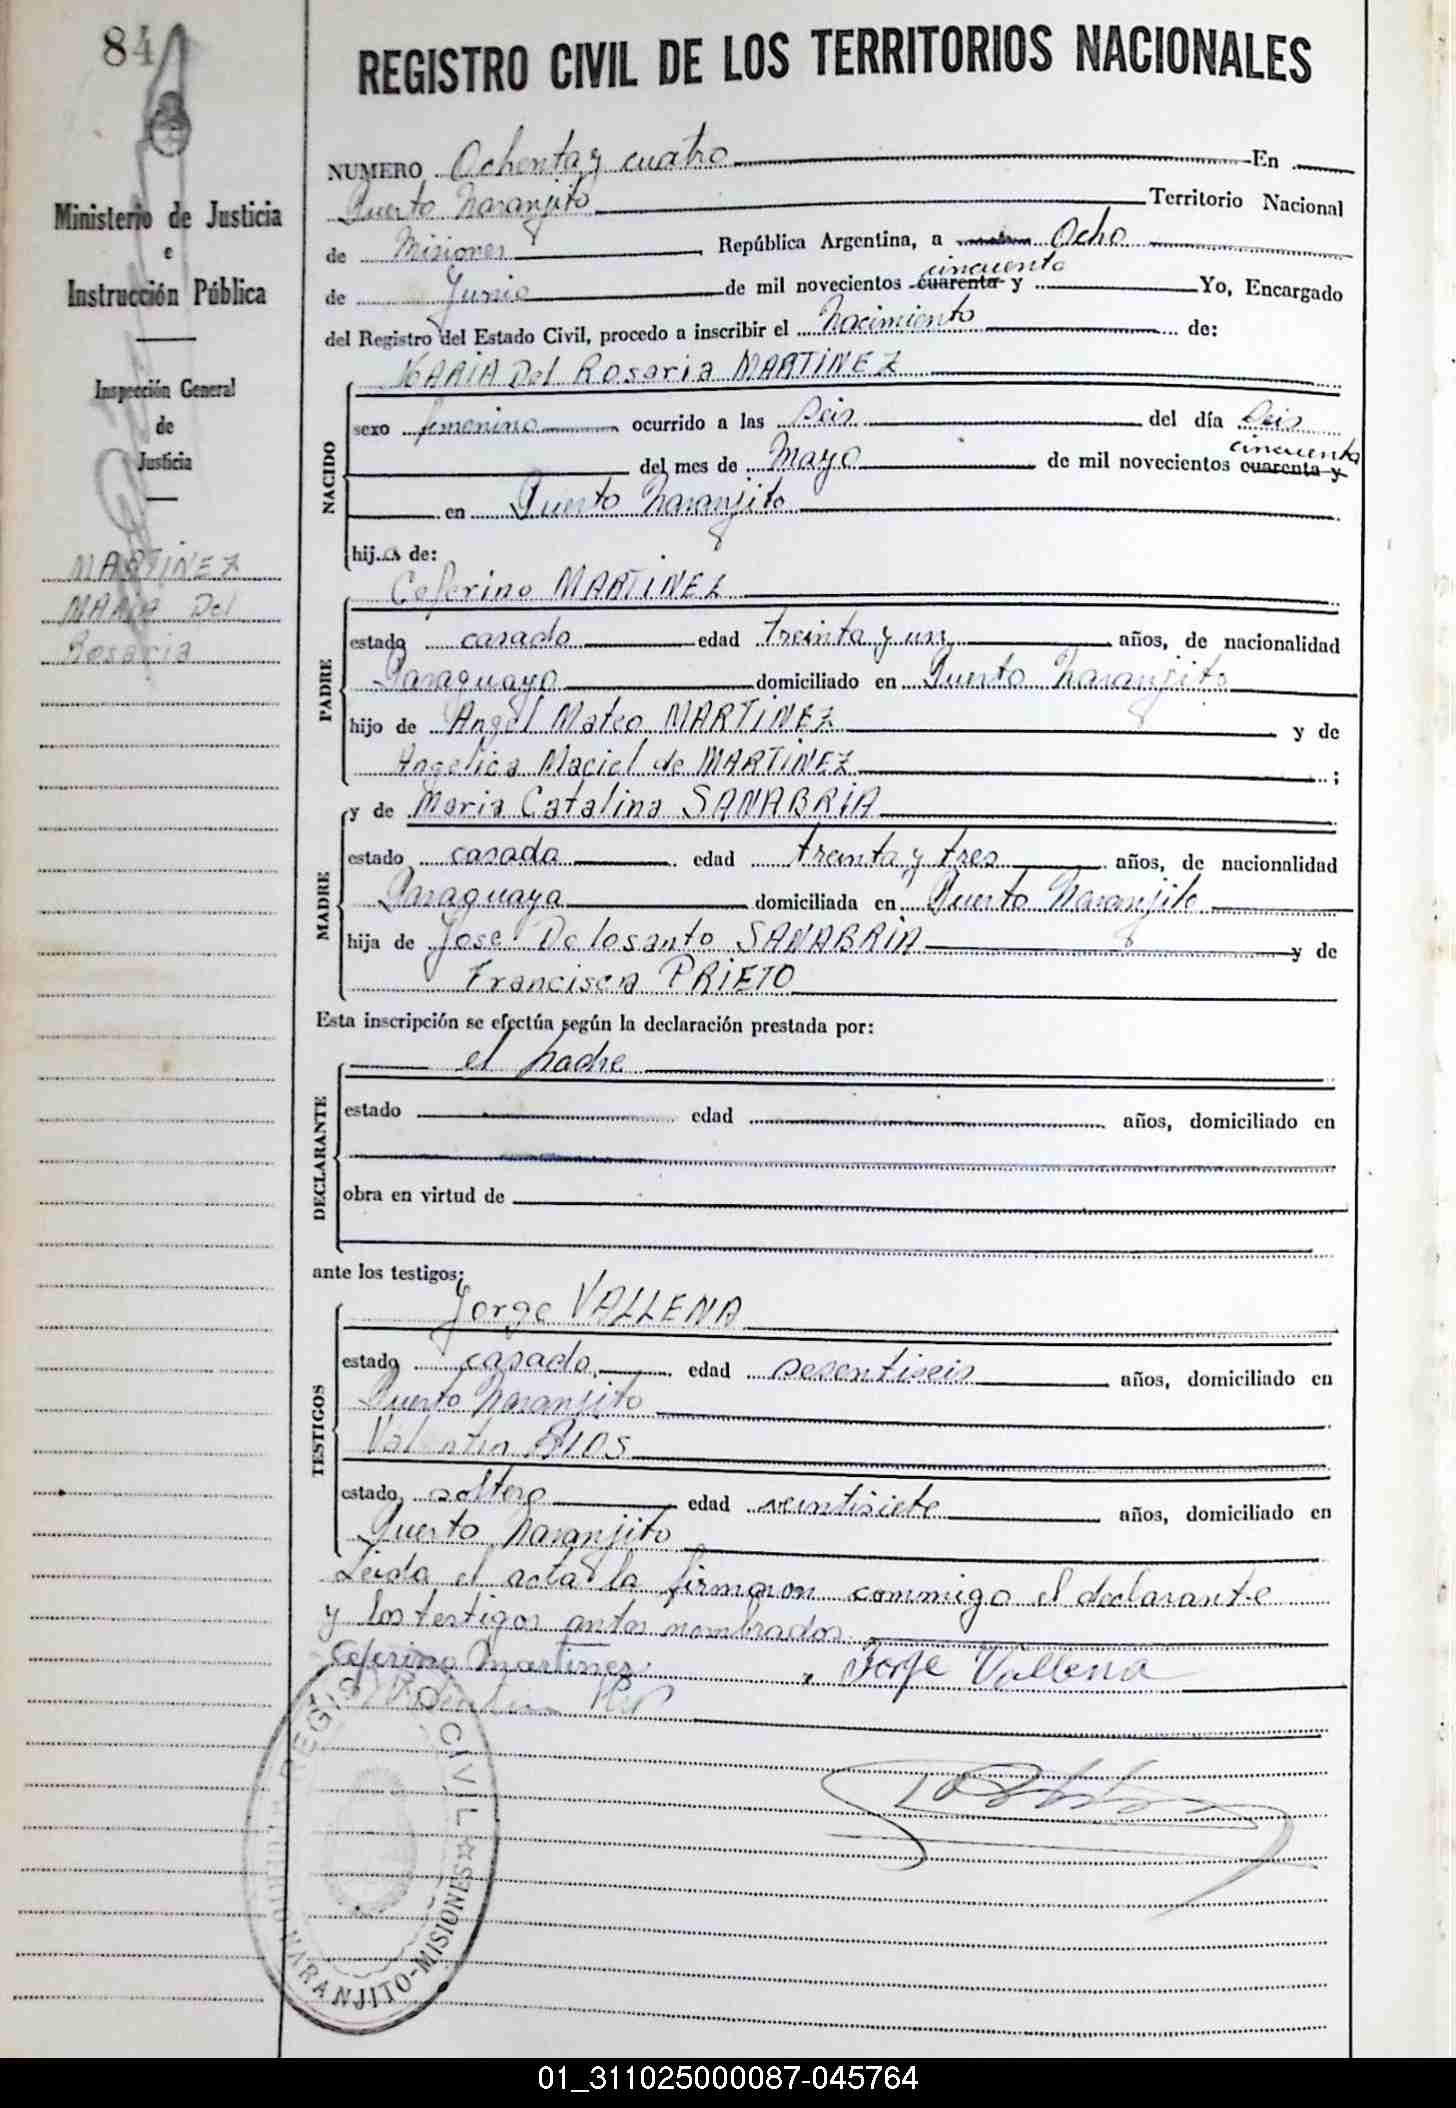 84
REGISTRO CIVIL DE LOS TERRITORIOS NACIONALES
Ministerio de Justicia
e
Instrucción Pública
Inspección General
de
Justicia
MARTINEZ
MARIA Del
Rosaria
NUMERO Ochenta y cuatro En
Puerto Naranjito Territorio Nacional
de Misiones República Argentina, a Ocho
cincuenta
de Junio de mil novecientos cuarenta y Yo, Encargado
del Registro del Estado Civil, procedo a inscribir el Nacimiento de:
NACIDO
MARIA Del Rosaria MARTINEZ
sexo femenino ocurrido a las Seis del día Seis
cincuenta
del mes de Mayo de mil novecientos cuarenta y
en Puerto Naranjito
hija de:
PADRE
Ceferino MARTINEZ
estado casado edad treinta y un años, de nacionalidad
Paraguayo domiciliado en Puerto Naranjito
hijo de Angel Mateo MARTINEZ y de
Angelica Maciel de MARTINEZ ;
MADRE
y de Maria Catalina SANABRIA
estado casada edad treinta y tres años, de nacionalidad
Paraguaya domiciliada en Puerto Naranjito
hija de José Delosanto SANABRIA y de
Francisca PRIETO
Esta inscripción se efectúa según la declaración prestada por:
DECLARANTE
el padre
estado edad años, domiciliado en
obra en virtud de
ante los testigos:
TESTIGOS
Jorge VALLENA
estado casado edad sesentiseis años, domiciliado en
Puerto Naranjito
Valentin
estado soltero edad veintisiete años, domiciliado en
Puerto Naranjito
Leida el acta la firmaron commigo el declarante
y los testigos antes nombrados.
Ceferino Martinez Jorge Vallena
REGISTRO CIVIL ☆ PUERTO NARANJITO-MISIONES
01_311025000087-045764